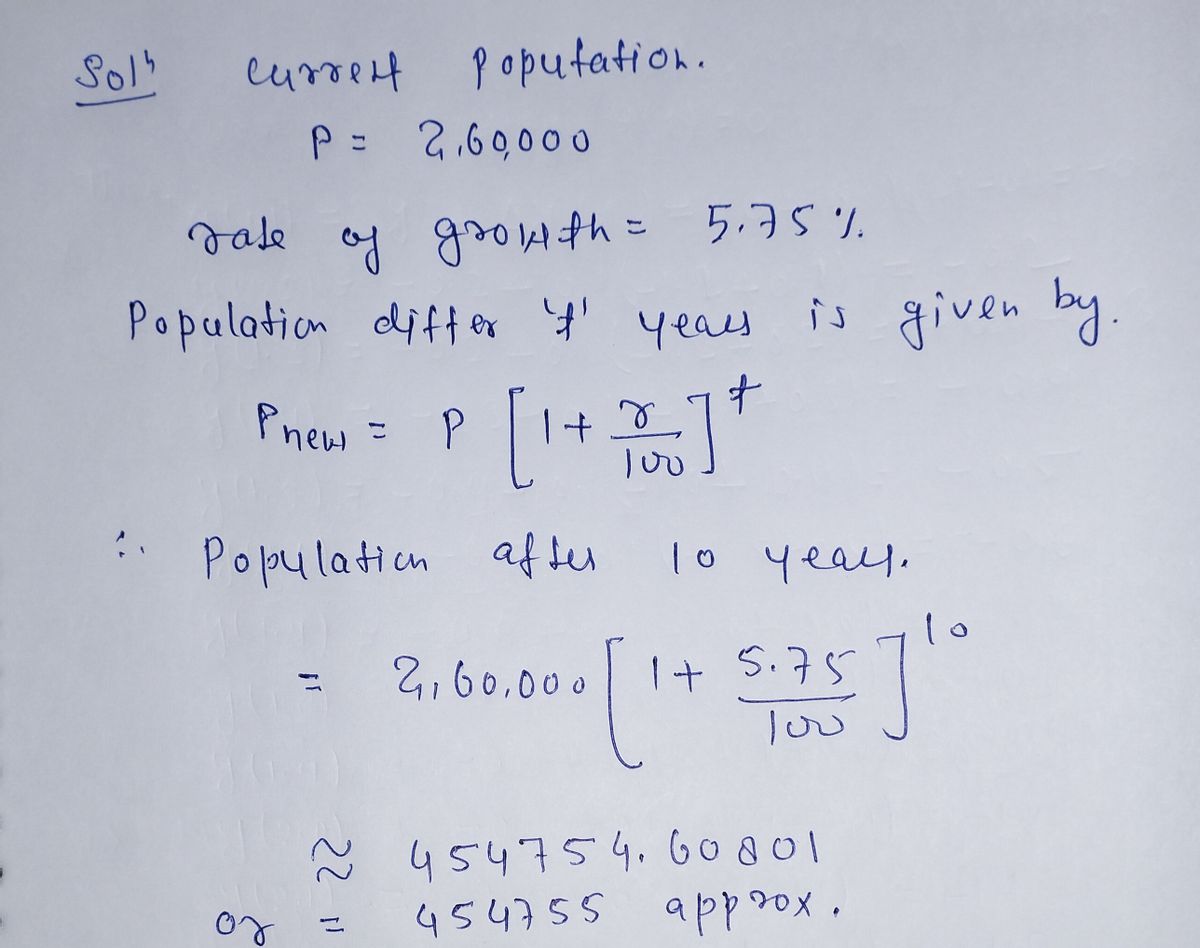 Solⁿ current population.
P = 2,60,000
rate of growth = 5.75 %.
Population differ 't' years is given by.
Pnew = P [1 + r/100]^t
∴ Population after 10 years.
= 2,60,000 [1 + 5.75/100]^10
≈ 454754.60801
or = 454755 approx.